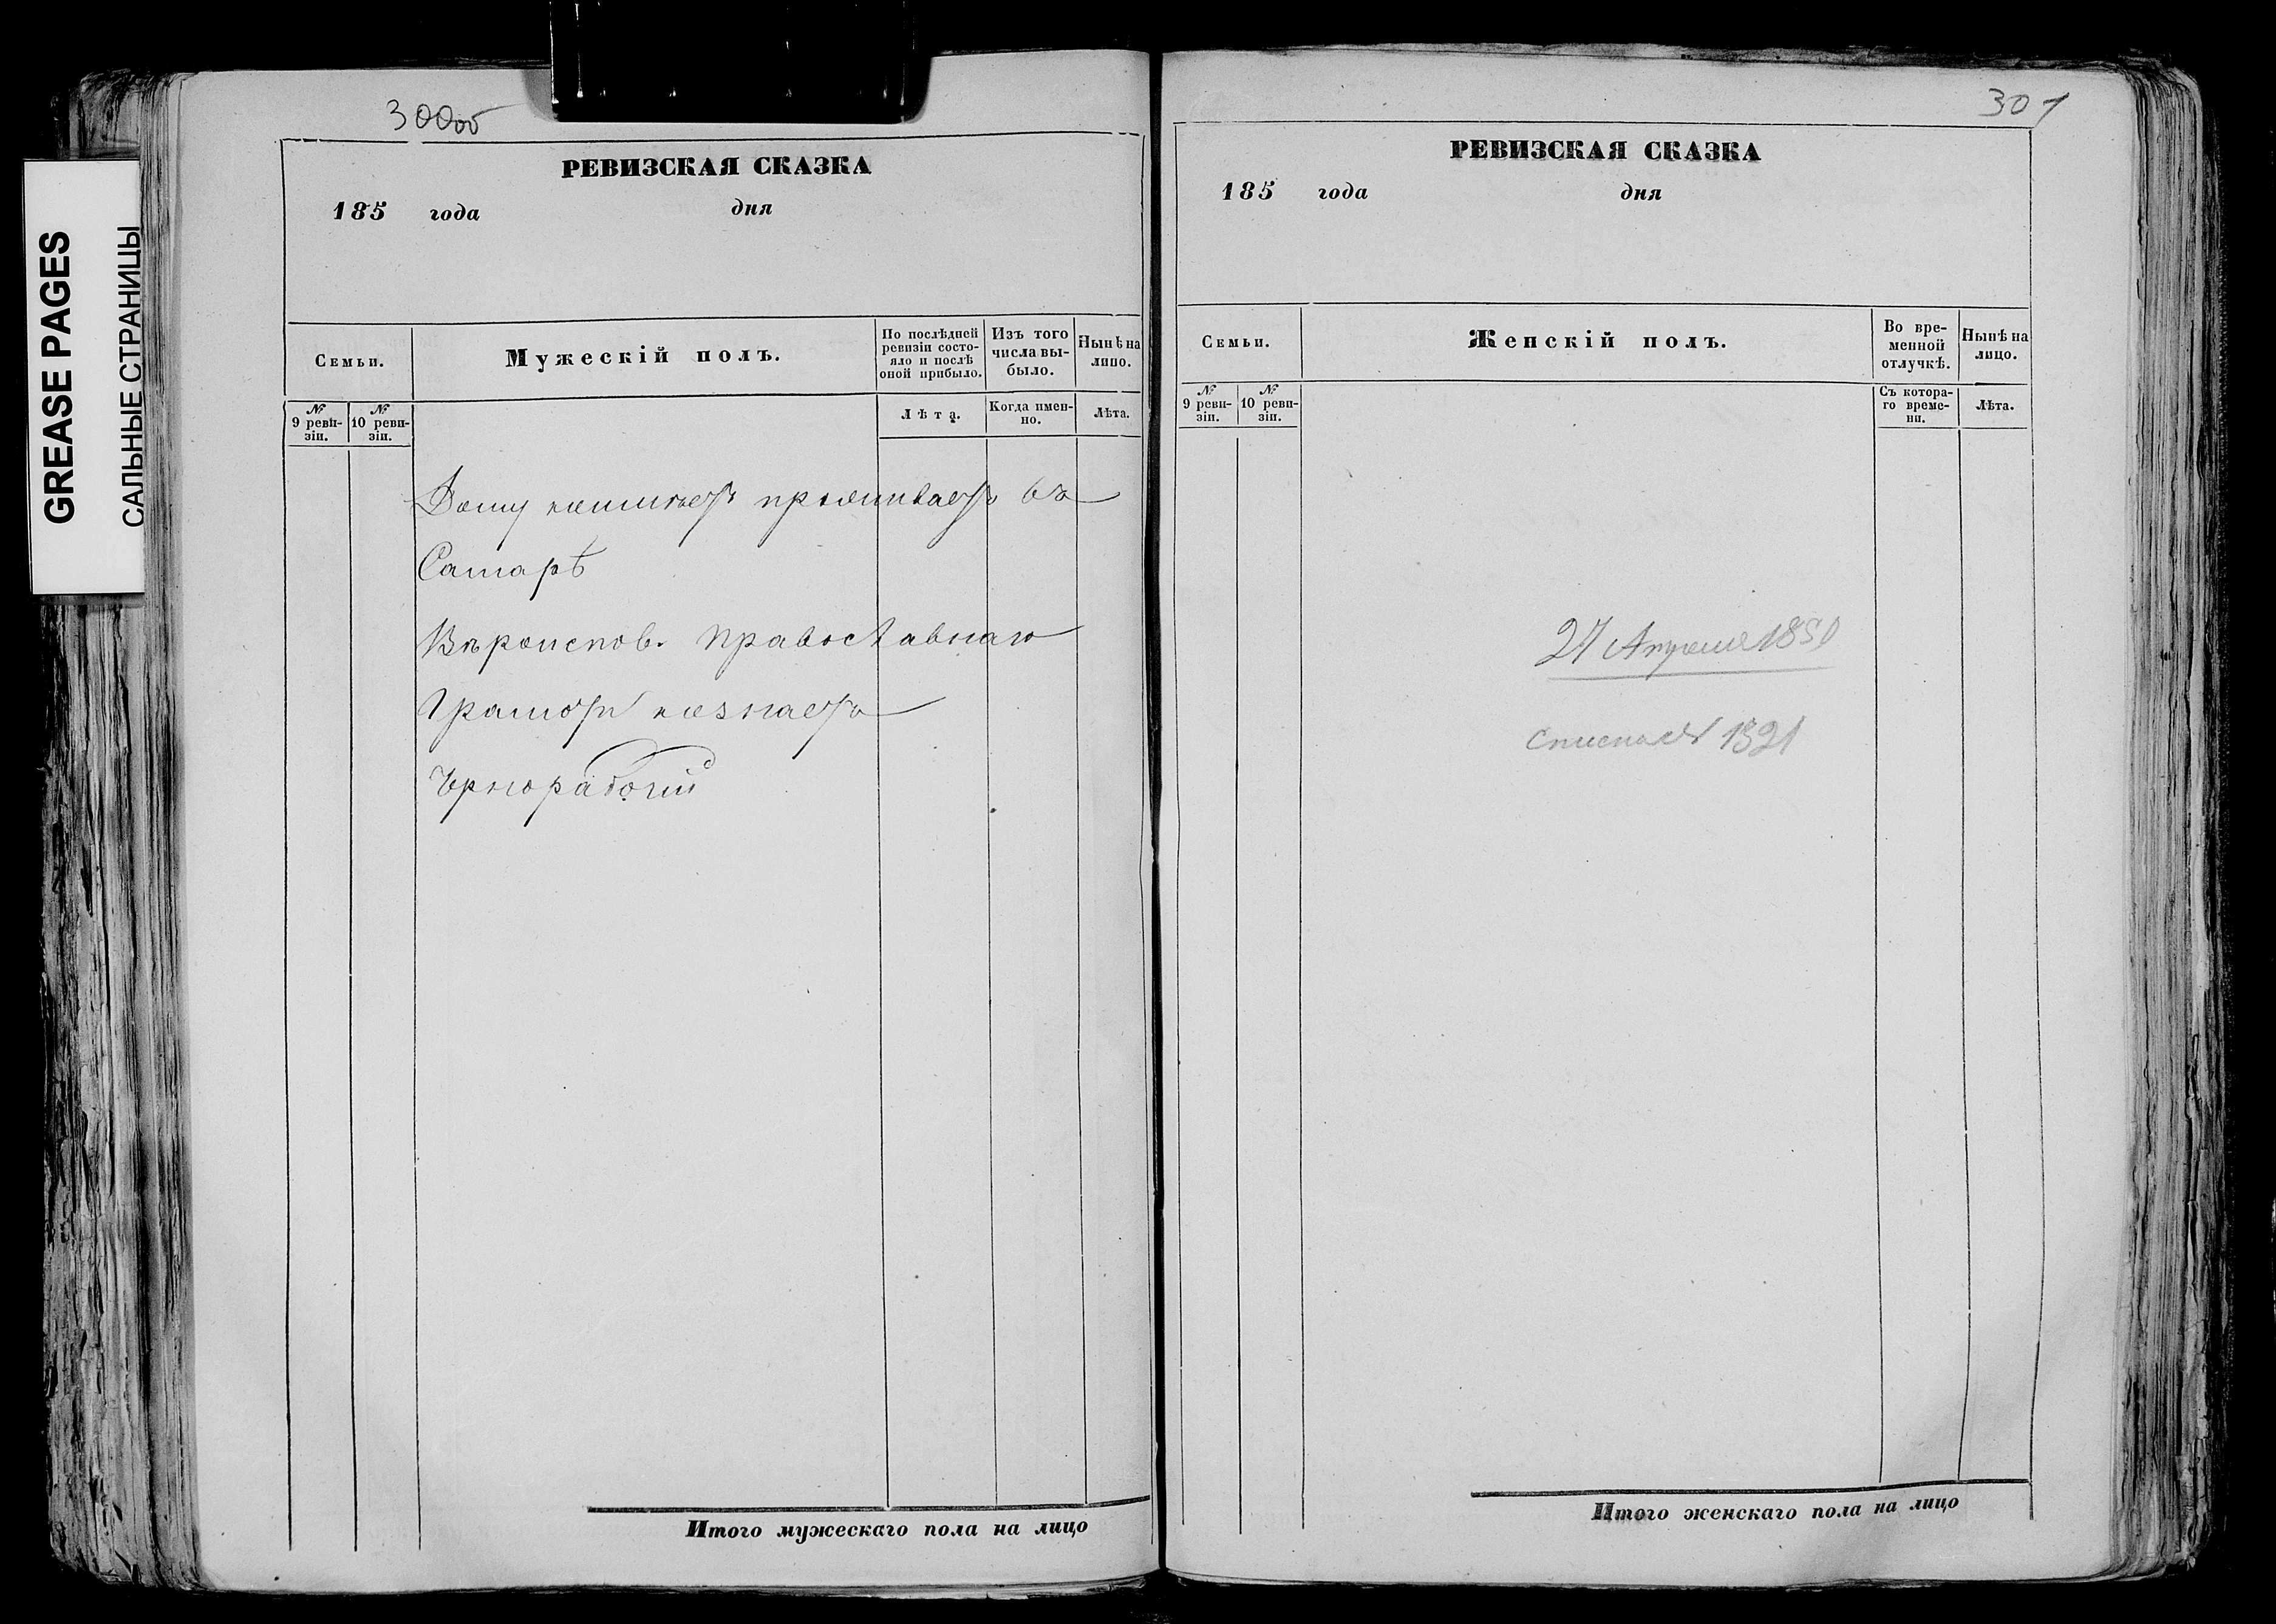 GREASE PAGES
САЛЬНЫЕ СТРАНИЦЫ
300об
РЕВИЗСКАЯ СКАЗКА
185 года дня
Семьи.
Мужескій полъ.
По послѣдней ревизіи состо-
яло и послѣ оной прибыло.
Изъ того числа вы-
было.
Нынѣ на лицо.
№ 9 реви-
зіи.
№ 10 реви-
зіи.
Лѣта.
Когда имен-
но.
Лѣта.
Дому неимѣетъ проживаетъ въ
Самарѣ
Вѣроиспов. Православнаго
Грамотѣ незнаетъ
Чернорабочій
Итого мужескаго пола на лицо
301
РЕВИЗСКАЯ СКАЗКА
185 года дня
Семьи.
Женскій полъ.
Во вре-
менной
отлучкѣ.
Нынѣ на
лицо.
№ 9 реви-
зіи.
№ 10 реви-
зіи.
Съ котора-
го време-
ни.
Лѣта.
27 Апреля
Итого женскаго пола на лицо